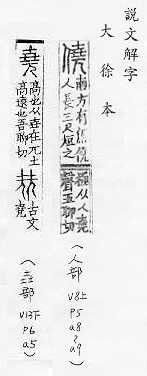 說文解字
大徐本
僥 南方有焦僥
人長三尺短之
極从人堯
聲五聊切
(人部
V8上
P5
a8
a9)
堯 高也从垚在兀上
高遠也吾聊切
古文
堯
(垚部
V13下
P6
a5)